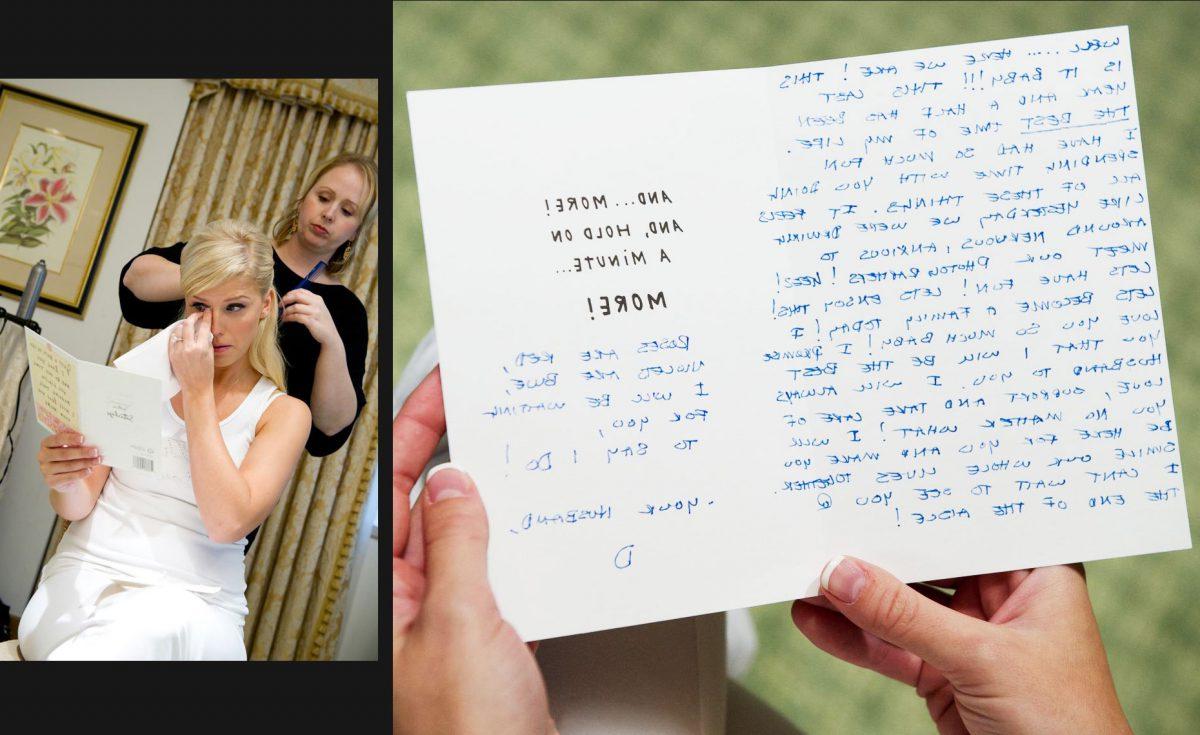 WELL ..... HERE WE ARE! THIS
IS IT BABY!!! THIS LAST
YEAR AND A HALF HAS BEEN
THE BEST TIME OF MY LIFE.
I HAVE HAD SO MUCH FUN
SPENDING TIME WITH YOU DOING
ALL OF THESE THINGS. IT FEELS
LIKE YESTERDAY WE WERE DRIVING
AROUND NERVOUS, ANXIOUS TO
MEET OUR PHOTOGRAPHERS!
LETS HAVE FUN! LETS ENJOY THIS!
LETS BECOME A FAMILY TODAY! I
LOVE YOU SO MUCH BABY! I PROMISE
YOU THAT I WILL BE THE BEST
HUSBAND TO YOU. I WILL ALWAYS
LOVE, SUPPORT, AND TAKE CARE OF
YOU NO MATTER WHAT! I WILL
BE HERE FOR YOU AND MAKE YOU
SMILE OUR WHOLE LIVES TOGETHER.
I CANT WAIT TO SEE YOU @
THE END OF THE AISLE!
AND...MORE!
AND, HOLD ON
A MINUTE...
MORE!
ROSES ARE RED,
VIOLETS ARE BLUE,
I WILL BE WAITING
FOR YOU,
TO SAY I DO!
- YOUR HUSBAND,
D